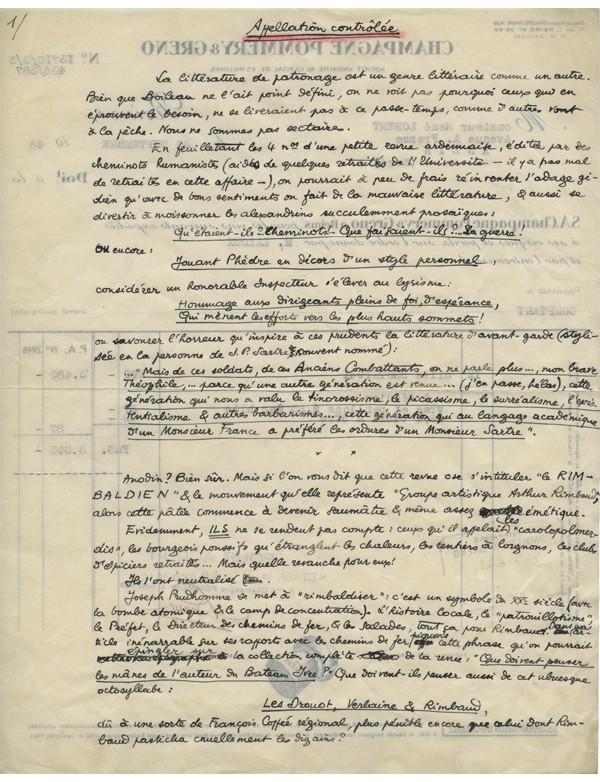 1/
Appellation contrôlée
CHAMPAGNE POMMERY & GRENO
La littérature de patronage est un genre littéraire comme un autre.
Bien que Boileau ne l'ait point défini, on ne voit pas pourquoi ceux qui en
éprouvent le besoin, ne se livreraient pas à ce passe-temps, comme d'autres vont
à la pêche. Nous ne sommes pas sectaires.
En feuilletant les 4 nos d'une petite revue ardennaise, éditée par des
cheminots humanistes (aidés de quelques retraités de l'Université – il y a pas mal
de retraités en cette affaire –), on pourrait à peu de frais réinventer l'adage gi-
dien qu'avec de bons sentiments on fait de la mauvaise littérature, & aussi se
divertir à moissonner les alexandrins succulemment prosaïques :
Qu'étaient-ils ? Cheminots ! – Que faisaient-ils ? – La guerre !
ou encore :
Jouant Phèdre en décors d'un style personnel,
considérer un honorable Inspecteur s'élever au lyrisme :
Hommage aux dirigeants pleins de foi, d'espérance,
Qui mènent les efforts vers les plus hauts sommets !
ou savourer l'horreur qu'inspire à ces prudents la littérature d'avant-garde (styli-
sée en la personne de J. P. Sartre, souvent nommé) :
..." Mais de ces soldats, de ces Anciens Combattants, on ne parle plus..., mon brave
Théophile,... parce qu'une autre génération est venue... (j'en passe, hélas), cette
génération qui nous a valu le tinorossisme, le picassisme, le surréalisme, l'exis-
tentialisme & autres barbarismes..., cette génération qui au langage académique
d'un Monsieur France a préféré les ordures d'un Monsieur Sartre ".
Anodin ? Bien sûr. Mais si l'on vous dit que cette revue ose s'intituler "le RIM-
BALDIEN" & le mouvement qu'elle représente "Groupe artistique Arthur Rimbaud",
alors cette pâtée commence à devenir saumâtre & même assez émétique.
Evidemment, ILS ne se rendent pas compte : ceux qu'il appelait les "carolopolmer-
dis", les bourgeois poussifs qu'étranglent les chaleurs, les rentiers à lorgnons, les clubs
d'épiciers retraités... Mais quelle revanche pour eux !
Ils l'ont neutralisé.
Joseph Prudhomme se met à "rimbaldiser" : c'est un symbole du XXe siècle (avec
la bombe atomique & le camp de concentration). L'histoire locale, le "patrouillotisme",
le Préfet, le Directeur des chemins de fer, & les Salades, tout ça pour Rimbaud. Dans un ar-
ticle inénarrable sur ses rapports avec le chemins de fer, piquons cette phrase qu'on pourrait
épingler sur la collection complète de la revue : "Que doivent penser
les mânes de l'auteur du Bateau Ivre ?" Que doivent-ils penser aussi de cet ubuesque
octosyllabe :
Les Drouot, Verlaine & Rimbaud,
dû à une sorte de François Coppée régional, plus pénible encore que celui dont Rim-
baud pasticha cruellement les dizains ?